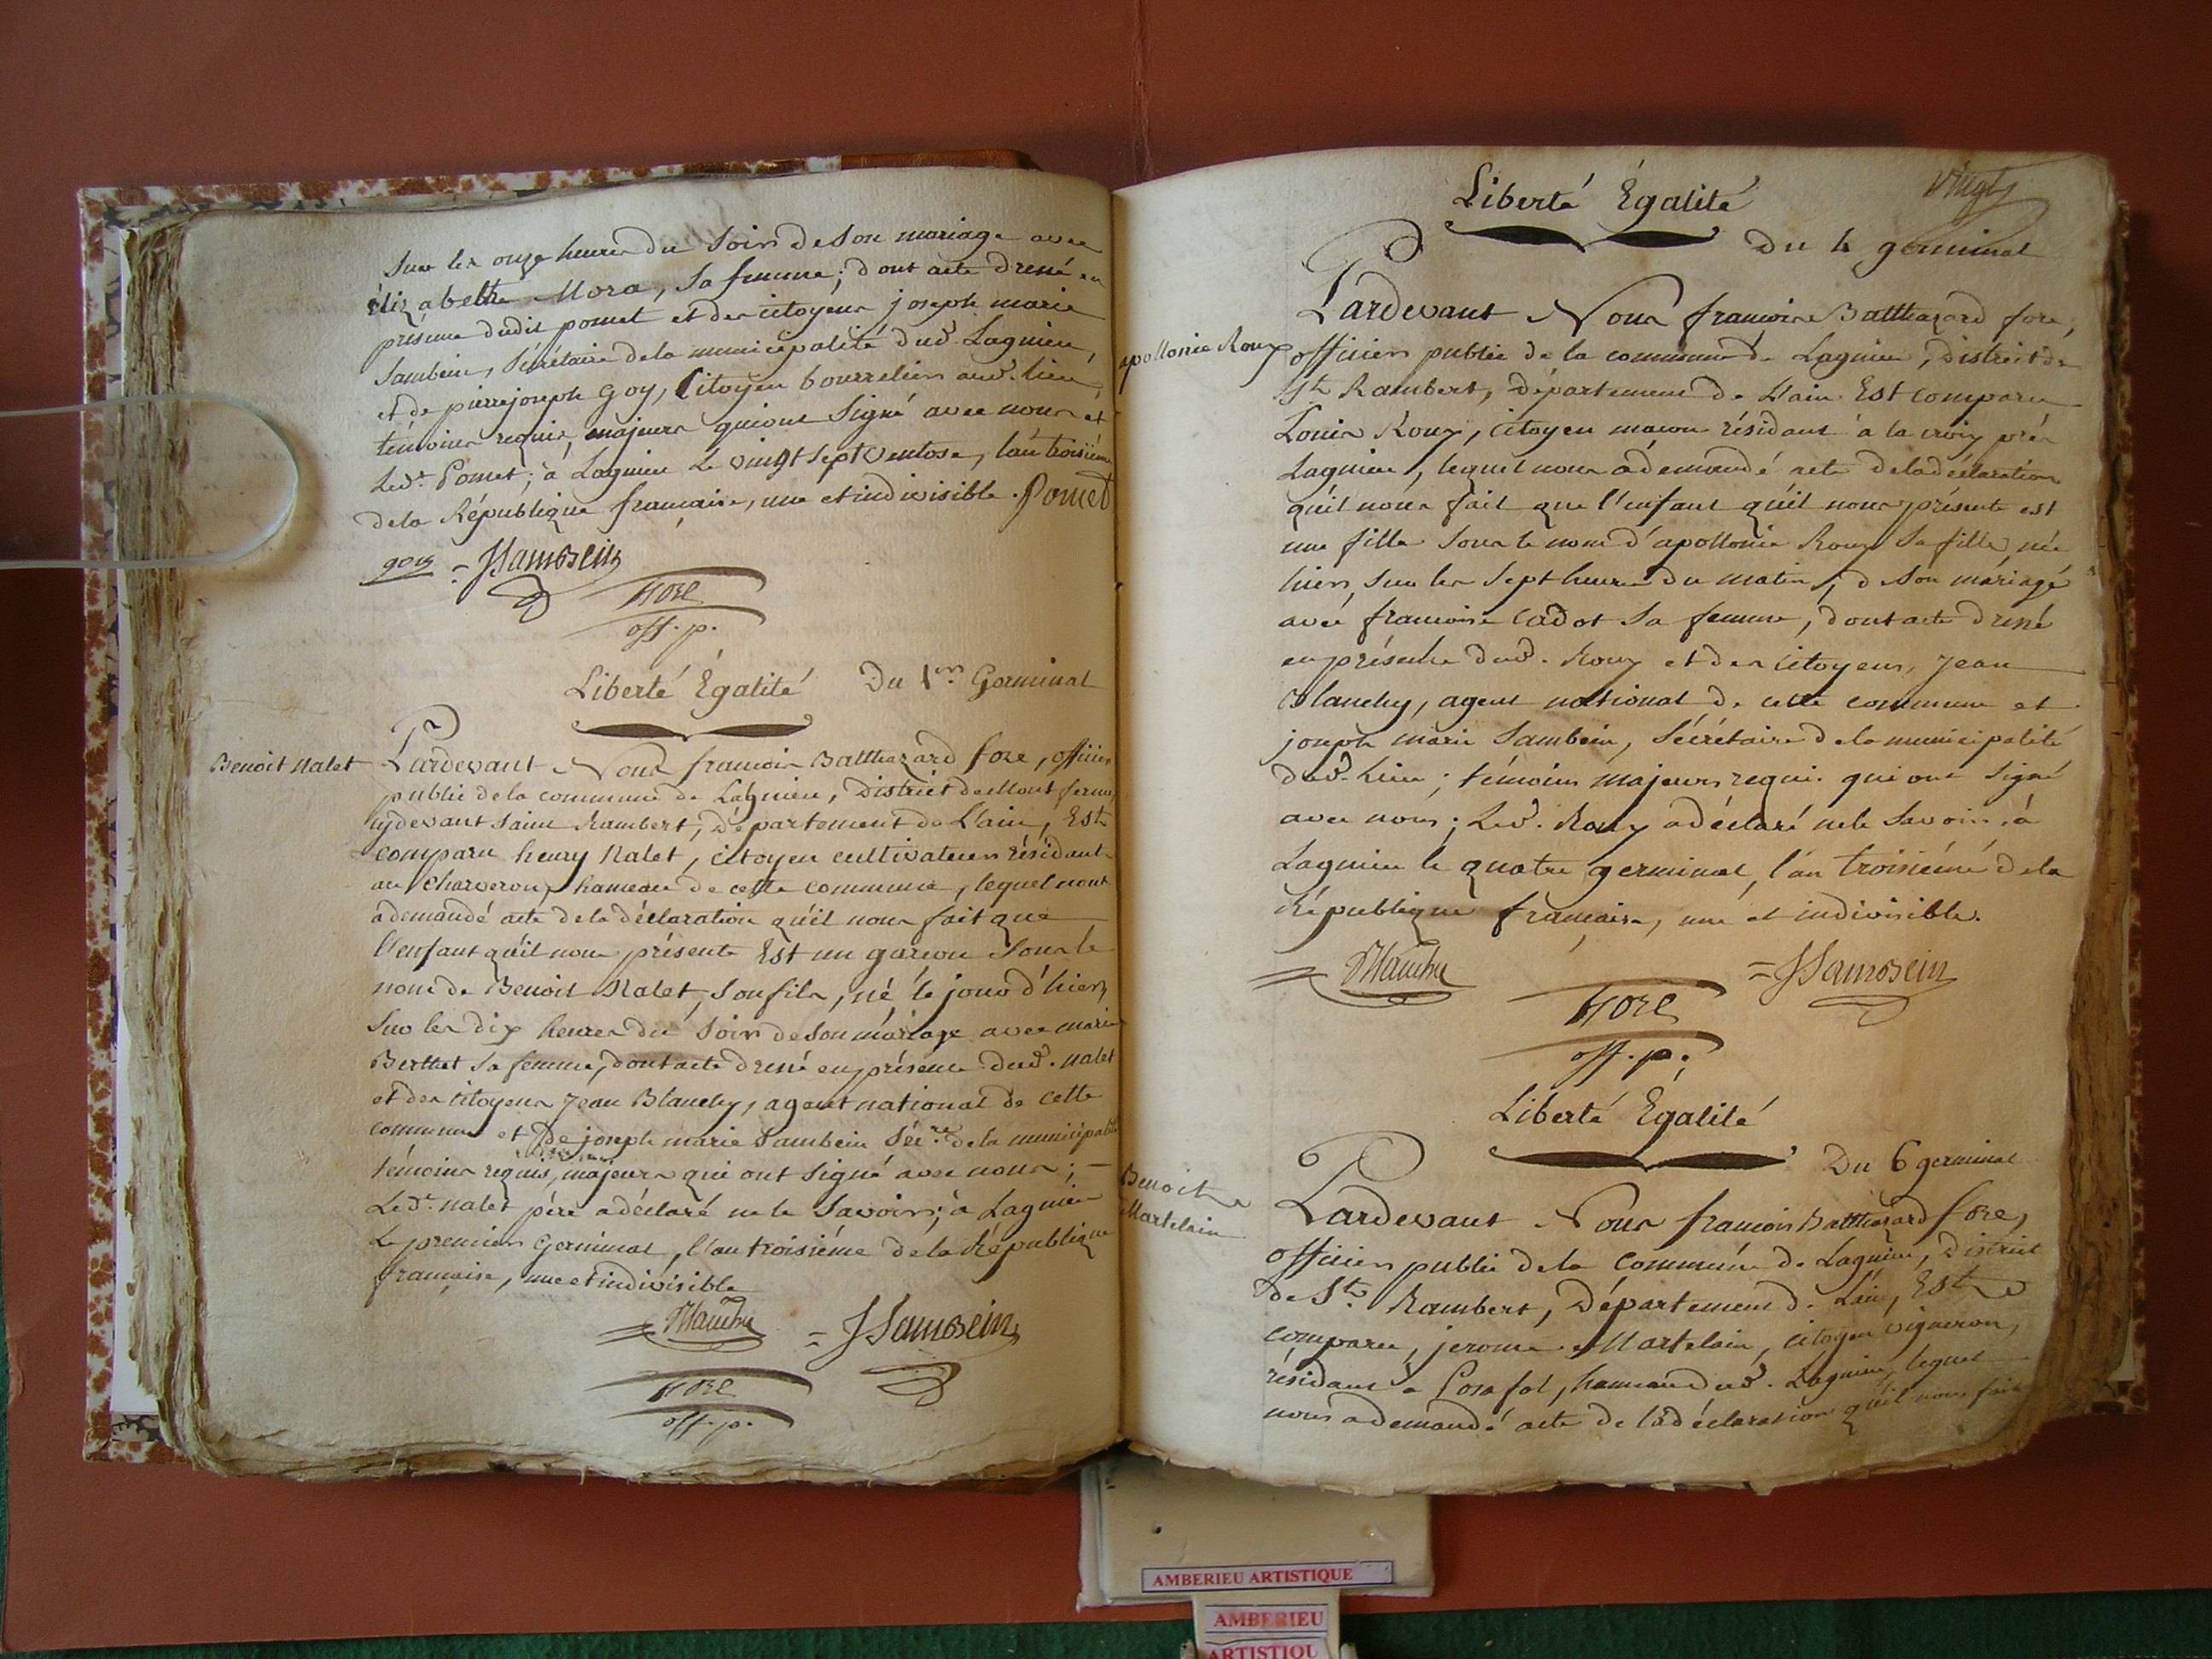 Sur les onze heures du Soir de Son mariage avec
élizabethe Mora, Sa femme; dont acte dressé en
présence dudit pomet et des citoyens joseph marie
Sambein, Sécrétaire de la municipalité dud. Lagnieu,
et de pierre joseph goy, Citoyen bourrelier aud. lieu,
témoins requis, majeurs qui ont Signé avec nous et
led.t Pomet; à Lagnieu Le vingt Sept ventose, l'an troisième
de la République française, une et indivisible. Pomet
goy = JSambein
fore
off. p.
Liberté Égalité Du 1.er Germinal
Benoit nalet
Pardevant Nous francois Balthazard fore, officier
public de la commune de Lagnieu, District de Mont ferme
cydevant Saint Rambert, Département de L'ain, Est
comparu henry Nalet, citoyen cultivateur résidant
au Charveron, hameau de cette commune, lequel nous
a demandé acte de la déclaration qu'il nous fait que
l'enfant qu'il nous présente Est un garçon Sous le
nom de Benoit Nalet, Son fils, né le jour d'hier,
Sur les dix heures du Soir de Son mariage avec marie
Berthet Sa femme, dont acte dressé en présence dud. nalet
et des citoyens Jean Blanchy, agent national de cette
commune et de joseph marie Sambein Sécre. de la municipalité
témoins requis, majeurs qui ont Signé avec nous;
Led.t nalet père a déclaré ne le Savoir; à Lagnieu
Le premier Germinal, l'an troisième de la République
française, une et indivisible
Blanchy = JSambein
fore
off. p.
vingt
Liberté Égalité
Du 4 germinal
apollonie Roux
Pardevant Nous francois Balthazard fore,
officier public de la commune de Lagnieu, district de
St. Rambert, Département de L'ain Est comparu
Louis Roux, citoyen macon résidant à la croix près
Lagnieu, lequel nous a demandé acte de la déclaration
qu'il nous fait que l'enfant qu'il nous présente est
une fille Sous le nom d'apollonie Roux Sa fille, née
hier, Sur les Sept heures du matin, de Son mariage
avec francoise Cadot Sa femme, dont acte dressé
en présence dud. Roux et des citoyens, Jean
Blanchy, agent national de cette commune et
joseph marie Sambein, Sécrétaire de la municipalité
dud. lieu; témoins majeurs requis qui ont Signé
avec nous; Led. Roux a déclaré ne le Savoir. à
Lagnieu le quatre germinal, l'an troisième de la
République française, une et indivisible.
Blanchy = JSambein
fore
off. p.
Liberté Égalité
Du 6 germinal
Benoite
Martelain
Pardevant Nous francois Balthazard fore,
officier public de la Commune de Lagnieu, District
de St. Rambert, Département de L'ain, Est
comparu, jerome Martelain, citoyen vigneron,
résidant à Posafol, hameau dud. Lagnieu, lequel
nous a demandé acte de la déclaration qu'il nous fait
AMBERIEU ARTISTIQUE
AMBERIEU
ARTISTIQU